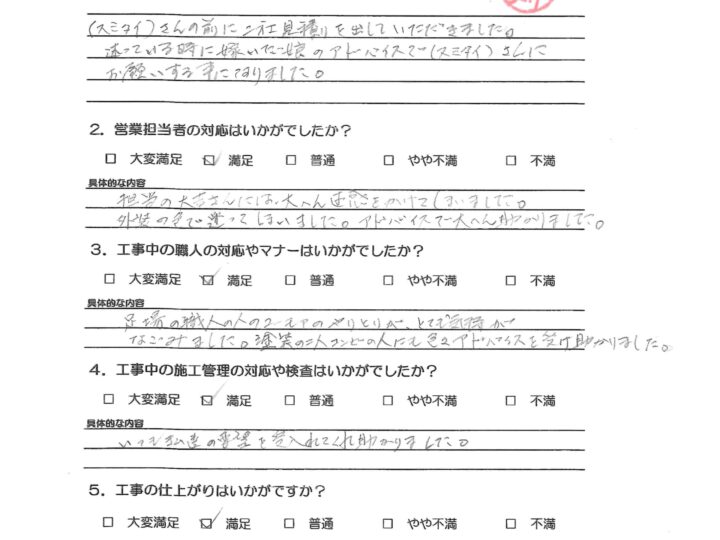 (スミタイ)さんの前に二社見積りを出していただきました。
迷っている時に嫁いだ娘のアドバイスで(スミタイ)さんに
お願いする事になりました。
2. 営業担当者の対応はいかがでしたか？
□ 大変満足 ☑ 満足 □ 普通 □ やや不満 □ 不満
具体的な内容
担当の大吉さんには、大へん迷惑をかけてしまいました。
外装の色で迷ってしまいました。アドバイスで大へん助かりました。
3. 工事中の職人の対応やマナーはいかがでしたか？
□ 大変満足 ☑ 満足 □ 普通 □ やや不満 □ 不満
具体的な内容
足場の職人の人のユーモアのやりとりが、とても気持が
なごみました。塗装の二人コンビの人にも色々アドバイスを受け助かりました。
4. 工事中の施工管理の対応や検査はいかがでしたか？
□ 大変満足 ☑ 満足 □ 普通 □ やや不満 □ 不満
具体的な内容
いつも私達の要望を受入れてくれ助かりました。
5. 工事の仕上がりはいかがですか？
□ 大変満足 ☑ 満足 □ 普通 □ やや不満 □ 不満